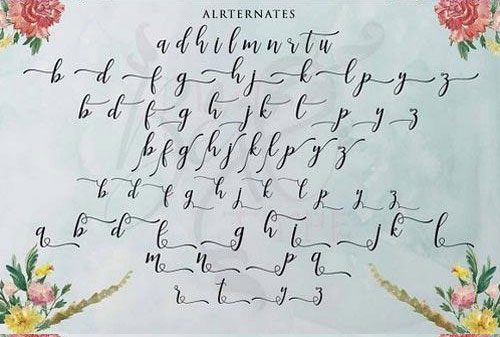 ALRTERNATES
a d h i l m n r t u
b d f g h j k l p y z
b d f g h j k l p y z
b f g h j k l p y z
b d f g h j k l p y z
a b d f g h i j k l
m n p q
r t y z